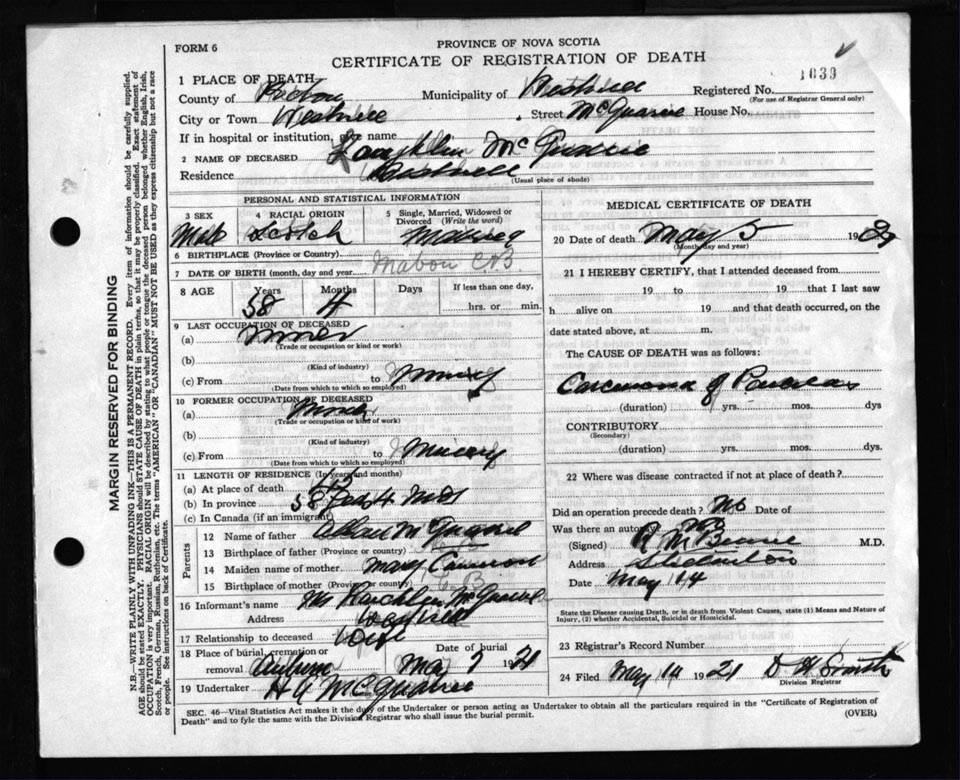 FORM 6
PROVINCE OF NOVA SCOTIA
CERTIFICATE OF REGISTRATION OF DEATH
1039
1 PLACE OF DEATH
County of Pictou Municipality of Westville Registered No.
(For use of Registrar General only)
City or Town Westville Street McQuarrie House No.
If in hospital or institution, give name
2 NAME OF DECEASED Laughlin McQuarrie
Residence Westville
(Usual place of abode)
PERSONAL AND STATISTICAL INFORMATION
3 SEX 4 RACIAL ORIGIN 5 Single, Married, Widowed or Divorced (Write the word)
Male Scotch Married
6 BIRTHPLACE (Province or Country)
Mabou C.B.
7 DATE OF BIRTH (month, day and year)
8 AGE Years Months Days If less than one day,
58 4 hrs. or min.
9 LAST OCCUPATION OF DECEASED
(a) Miner
(Trade or occupation or kind or work)
(b)
(Kind of industry)
(c) From to Mining
(Date from which to which so employed)
10 FORMER OCCUPATION OF DECEASED
(a) Miner
(Trade or occupation or kind of work)
(b)
(Kind of industry)
(c) From to Mining
(Date from which to which so employed)
11 LENGTH OF RESIDENCE (In years and months)
(a) At place of death
(b) In province 58 years 4 mos
(c) In Canada (if an immigrant)
Parents
12 Name of father Allan McQuarrie
13 Birthplace of father (Province or country)
14 Maiden name of mother Mary Cameron
15 Birthplace of mother (Province or country) C.B.
16 Informant's name Mrs Lauchlin McQuarrie
Address Westville
17 Relationship to deceased Wife
18 Place of burial, cremation or removal Auburn Date of burial May 7 1921
19 Undertaker H A McQuarrie
MEDICAL CERTIFICATE OF DEATH
20 Date of death May 5 19
(Month, day and year)
21 I HEREBY CERTIFY, that I attended deceased from
19 to 19 that I last saw
h alive on 19 and that death occurred, on the
date stated above, at m.
The CAUSE OF DEATH was as follows:
Carcinoma of Pancreas
(duration) yrs. mos. dys
CONTRIBUTORY
(Secondary)
(duration) yrs. mos. dys.
22 Where was disease contracted if not at place of death?
Did an operation precede death? No Date of
Was there an autopsy no
(Signed) M.D.
Address Stellarton
Date May 14
State the Disease causing Death, or in death from Violent Causes, state (1) Means and Nature of Injury, (2) whether Accidental, Suicidal or Homicidal.
23 Registrar's Record Number
24 Filed May 14 1921 D H Smith
Division Registrar
SEC. 46—Vital Statistics Act makes it the duty of the Undertaker or person acting as Undertaker to obtain all the particulars required in the "Certificate of Registration of
Death" and to fyle the same with the Division Registrar who shall issue the burial permit. (OVER)
MARGIN RESERVED FOR BINDING
N.B.—WRITE PLAINLY WITH UNFADING INK—THIS IS A PERMANENT RECORD. Every item of information should be carefully supplied.
AGE should be stated EXACTLY. PHYSICIANS should STATE CAUSE OF DEATH in plain terms, so that it may be properly classified. Exact statement of
OCCUPATION is very important. RACIAL ORIGIN will be described by stating to what people or tongue the deceased person belonged whether English, Irish,
Scotch, French, German, Russian, Ruthenian, etc. The terms "AMERICAN" OR "CANADIAN" MUST NOT BE USED as they express citizenship but not a race
or people. See instructions on back of Certificate.